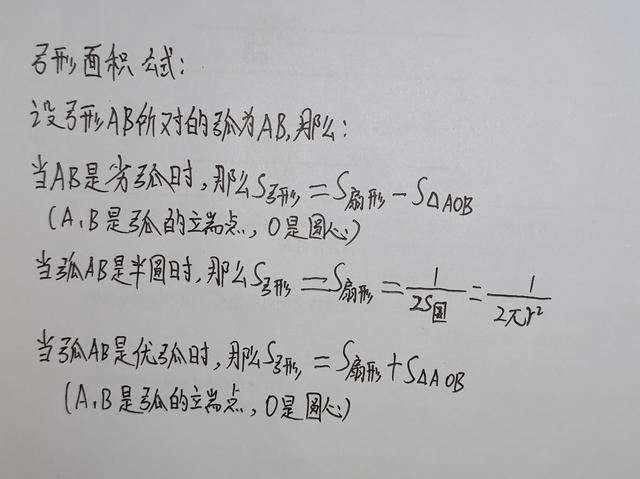 弓形面积公式:
设弓形AB所对的弧为AB,那么:
当AB是劣弧时,那么S弓形=S扇形-S△AOB
(A、B是弧的立端点,O是圆心)
当弧AB是半圆时,那么S弓形=S扇形=1/2S圆=1/2πr²
当弧AB是优弧时,那么S弓形=S扇形+S△AOB
(A、B是弧的立端点,O是圆心)